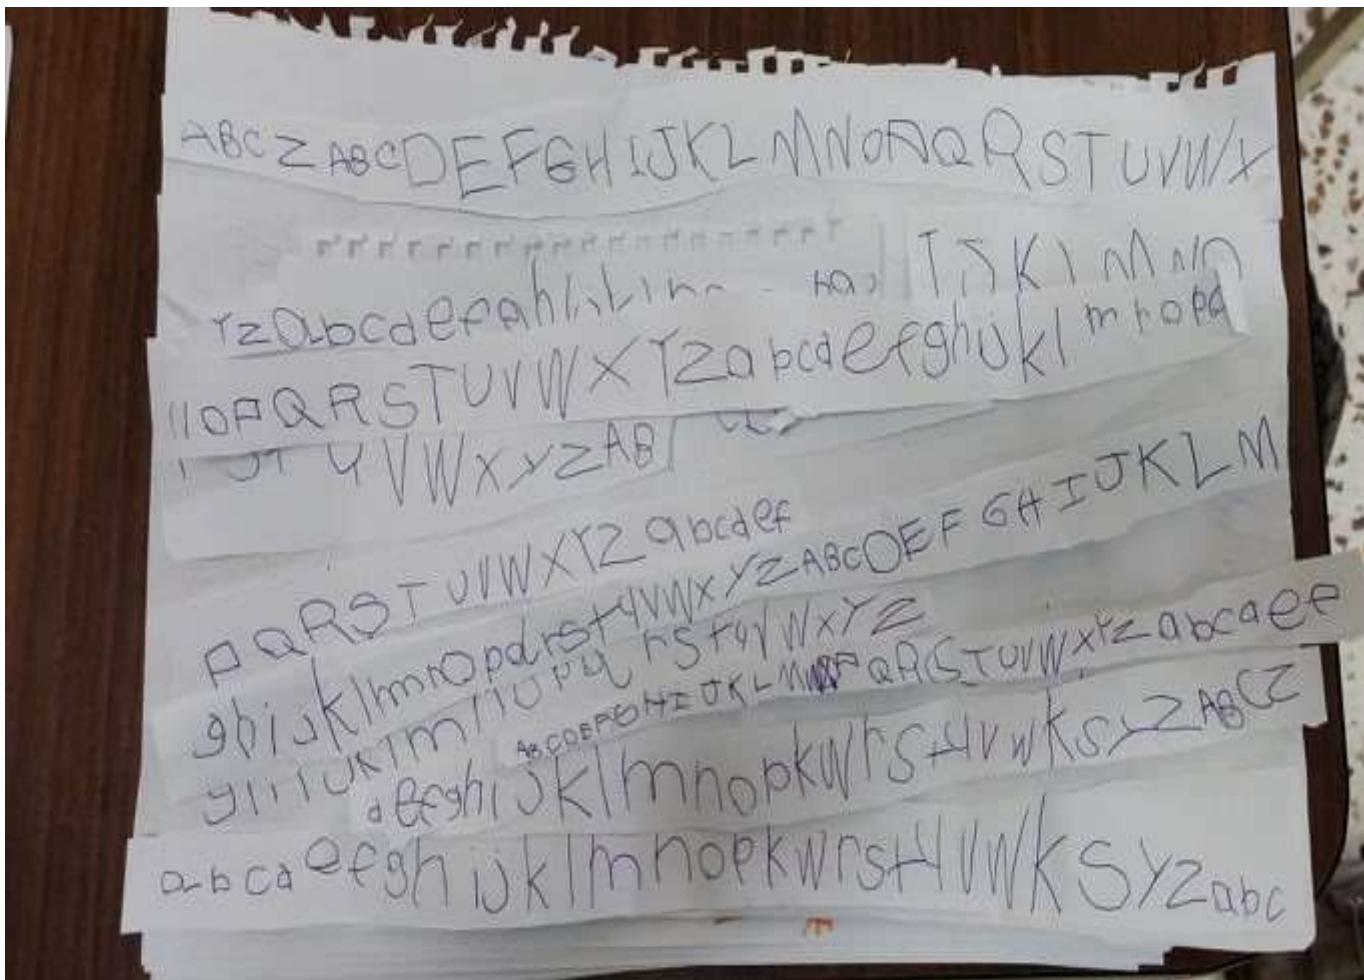 ABCZABCDEFGHIJKLMNOPQRSTUVWX
YZabcdefgh
IJKLMN
OPQRSTUVWXYZabcdefghijklmnopq
UVWXYZAB
PQRSTUVWXYZabcdef
ghijklmnopqrstuvwxyzABCDEFGHIJKLM
ijklmnopqrstuvwxyz
ABCDEFGHIJKLMNOPQRSTUVWXYZabcdef
defghijklmnopkwrstuvwksyzABCZ
abcdefghijklmnopkwrstuvwksyzabc